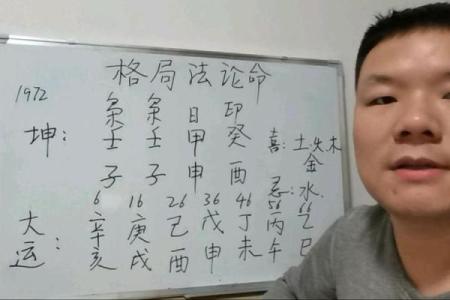 格局法论命
1972 枭 枭 日 印
坤: 壬 壬 甲 癸 喜: 土.火.木
金
子 子 申 酉 忌: 水.
6 16 26 36 46 56 66
大 辛 庚 己 戊 丁 丙 乙
运: 亥 戌 酉 申 未 午 巳